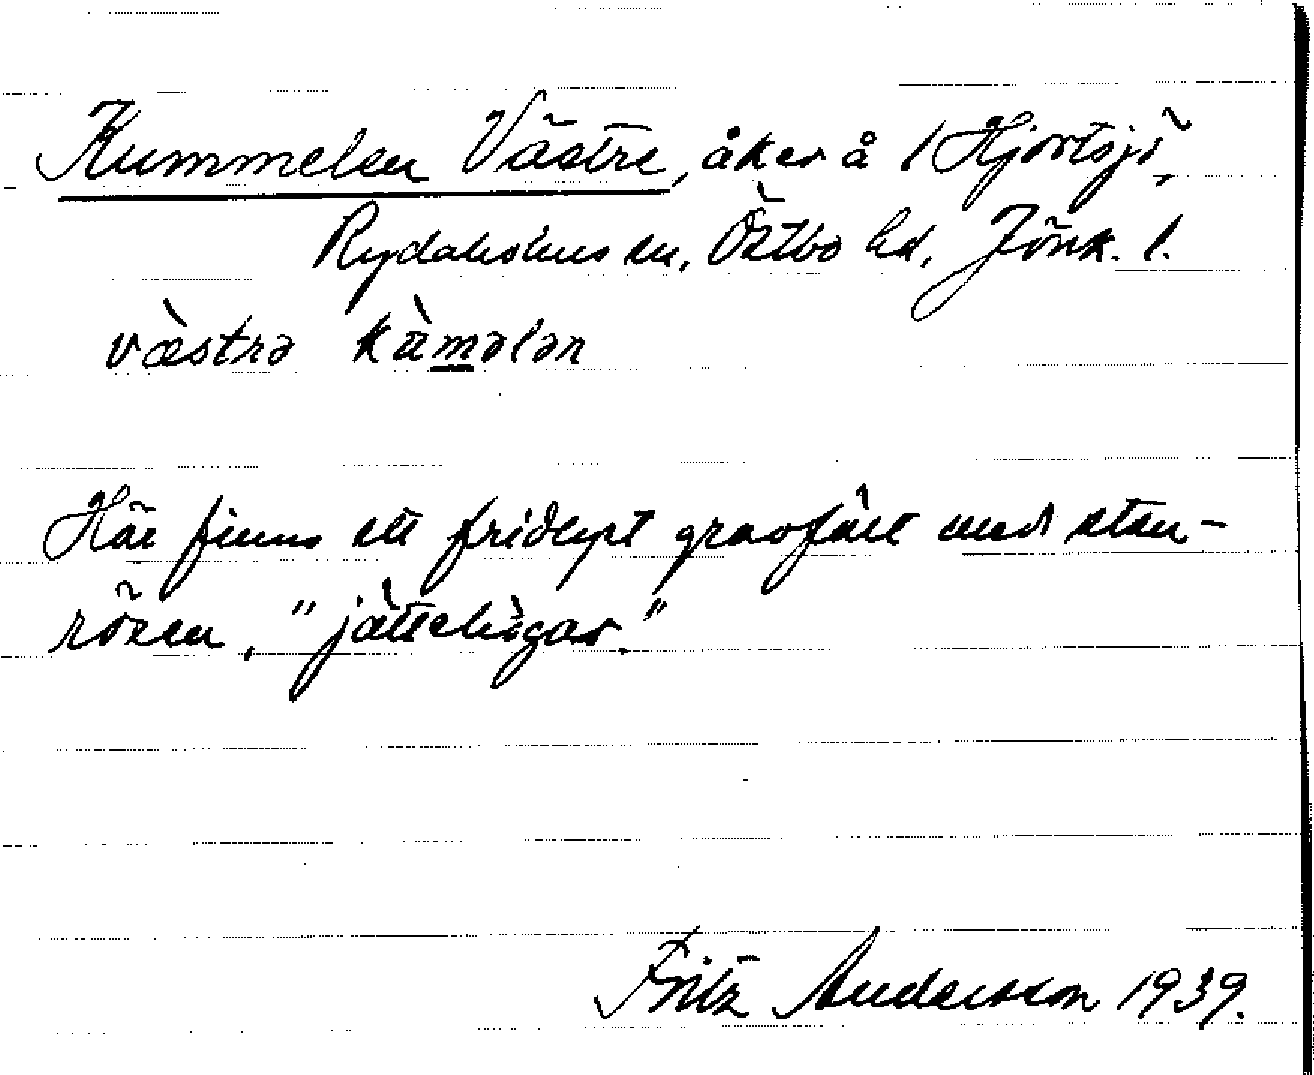 Kummelen Västre, åker å 1 Hjortsjö,
Rydaholms sn, Östbo hd, Jönk. l.
vàstrə kàmələn
Här finns ett fridlyst gravfält med sten-
rösen, "jättehögar."
Fritz Andersson 1939.